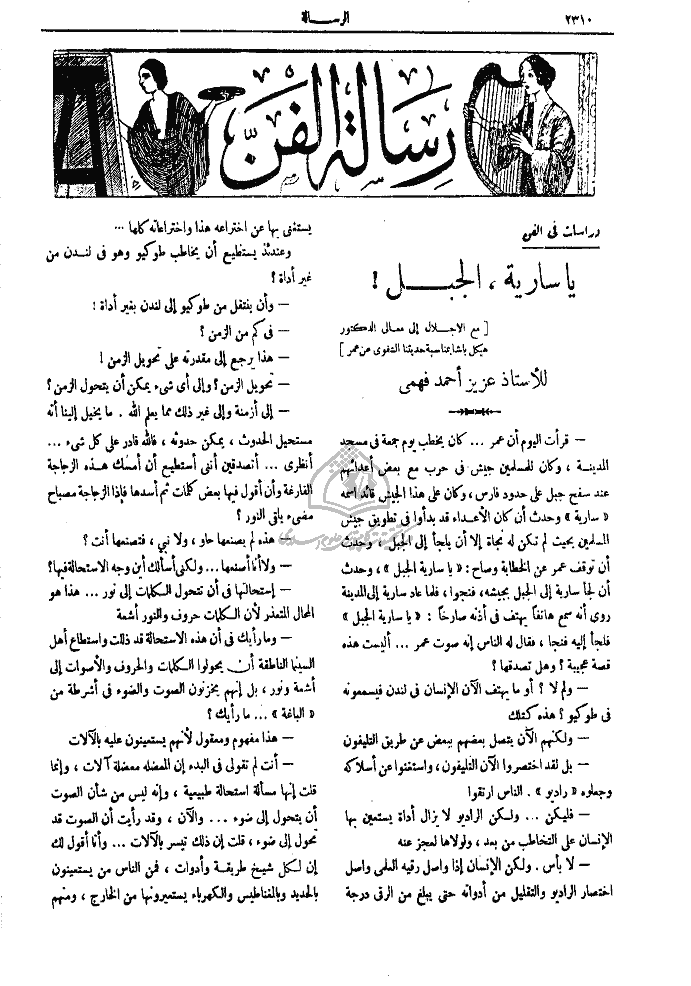 ٢٣١٠
الرسالة
رسالة الفن
دراسات في الفن
يا سارية ، الجبل !
[ مع الاجلال إلى معالي الدكتور
هيكل باشا بمناسبة حديثنا التلفوي عن عمر ]
للأستاذ عزيز أحمد فهمي
— قرأت اليوم أن عمر ... كان يخطب يوم جمعة في مسجد
المدينة ، وكان للمسلمين جيش في حرب مع بعض أعدائهم
عند سفح جبل على حدود فارس ، وكان على هذا الجيش قائد اسمه
« سارية » وحدث أن كان الأعداء قد بدأوا في تطويق جيش
المسلمين بحيث لم تكن له نجاة إلا أن يلجأ إلى الجبل ، وحدث
أن توقف عمر عن الخطابة وصاح : « يا سارية الجبل » ، وحدث
أن لجأ سارية إلى الجبل بجيشه ، فنجوا ، فلما عاد سارية إلى المدينة
روى أنه سمع هاتفاً يهتف في أذنه صارخاً : « يا سارية الجبل »
فلجأ إليه فنجا ، فقال له الناس إنه صوت عمر ... أليست هذه
قصة عجيبة ؟ وهل تصدقها ؟
— ولم لا ؟ أو ما يهتف الآن الإنسان في لندن فيسمعونه
في طوكيو ؟ هذه كتلك
— ولكنهم الآن يتصل بعضهم ببعض عن طريق التليفون
— بل لقد اختصروا الآن التليفون ، واستغنوا عن أسلاكه
وجعلوه « راديو » . الناس ارتقوا
— فليكن ... ولكن الراديو لا يزال أداة يستعين بها
الإنسان على التخاطب من بعد ، ولولاها لعجز عنه
— لا بأس . ولكن الإنسان إذا واصل رقيه العلمي واصل
اختصار الراديو والتقليل من أدواته حتى يبلغ من الرقي درجة
يستغني بها عن اختراعه هذا واختراعاته كلها ...
وعندئذ يستطيع أن يخاطب طوكيو وهو في لندن من
غير أداة ؟
— وأن ينتقل من طوكيو إلى لندن بغير أداة !
— في كم من الزمن ؟
— هذا يرجع إلى مقدرته على تحويل الزمن !
— تحويل الزمن ؟ وإلى أي شيء يمكن أن يتحول الزمن ؟
— إلى أزمنة وإلى غير ذلك مما يعلم الله . ما يخيل إلينا أنه
مستحيل الحدوث ، يمكن حدوثه ، فالله قادر على كل شيء ...
أنظري ... أتصدقين أنني أستطيع أن أمسك هذه الزجاجة
الفارغة وأن أقول فيها بعض كلمات ثم أسدها فإذا الزجاجة مصباح
مضيء باقي النور ؟
— هذه لم يصنعها حاو ، ولا نبي ، فتصنعها أنت ؟
— ولا أنا أصنعها ... ولكني أسألك أين وجه الاستحالة فيها ؟
— إستحالتها في أن تتحول الكلمات إلى نور ... هذا هو
المحال المتعذر لأن الكلمات حروف والنور أشعة
— وما رأيك في أن هذه الاستحالة قد ذللت واستطاع أهل
السينما الناطقة أن يحولوا الكلمات والحروف والأصوات إلى
أشعة ونور ، بل إنهم يخزنون الصوت والضوء في أشرطة من
« الباغة » ... ما رأيك ؟
— هذا مفهوم ومعقول لأنهم يستعينون عليه بالآلات
— أنت لم تقولي في البدء إن المعضله معضلة آلات ، وإنما
قلت إنها مسألة استحالة طبيعية ، وإنه ليس من شأن الصوت
أن يتحول إلى ضوء ... والآن ، وقد رأيت أن الصوت قد
تحول إلى ضوء ، قلت إن ذلك تيسر بالآلات ... وأنا أقول لك
إن لكل شيخ طريقة وأدوات ، فمن الناس من يستعينون
بالحديد والمغناطيس والكهرباء يستعيرونها من الخارج ، ومنهم